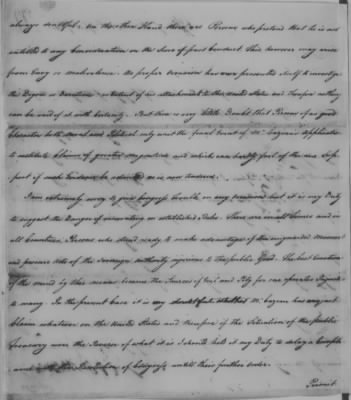 always doubtful. On the other Hand there are Persons who pretend that he is not
entitled to any Consideration on the Score of past Conduct. This however may arise
from Envy or malevolence. No proper occasion has ever presented itself to investigate
the Degree or Duration or Extent of his Attachment to the United States and therefore nothing
can be said of it with Certainty. But there is very little Doubt that Persons of as good
Character both moral and Political only wait the final Event of Mr. Cazeau's Application
to institute Claims of greater Magnitude and which can hardly fail of the same Sup-
port of such Evidence be admitted as is now tendered.
I am extremely sorry to give Congress trouble on any Occasion but it is my Duty
to suggest the Danger of innovating on established Rules. There are in all times and in
all Countries Persons who stand ready to make advantages of the unguarded Moment
and procure Acts of the Sovereign Authority injurious to the public Good. The best Emotions
of the mind by this means become the Sources of evil and Pity for one operates Injustice
to many. In the present Case it is very doubtful whether Mr. Cazeau has any just
Claim whatever on the United States and therefore if the Situation of the public
Treasury were the Reverse of what it is I should hold it my Duty to delay a Compli-
ance with the Resolution of Congress until their further order.
Permit